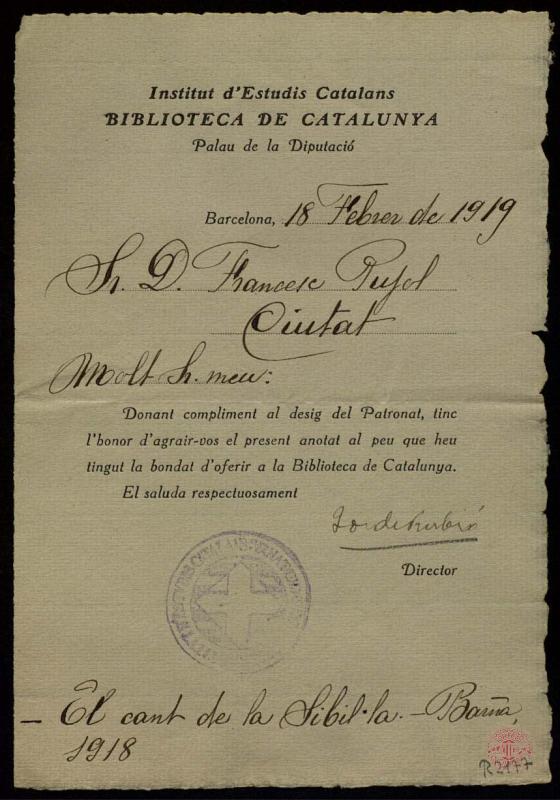 Institut d'Estudis Catalans
BIBLIOTECA DE CATALUNYA
Palau de la Diputació
Barcelona, 18 Febrer de 1919
Sr. D. Francesc Pujol
Ciutat
Molt Sr. meu:
Donant compliment al desig del Patronat, tinc
l'honor d'agrair-vos el present anotat al peu que heu
tingut la bondat d'oferir a la Biblioteca de Catalunya.
El saluda respectuosament
Jordi Rubió
Director
— El cant de la Sibil·la. — Barna,
1918
R 2177